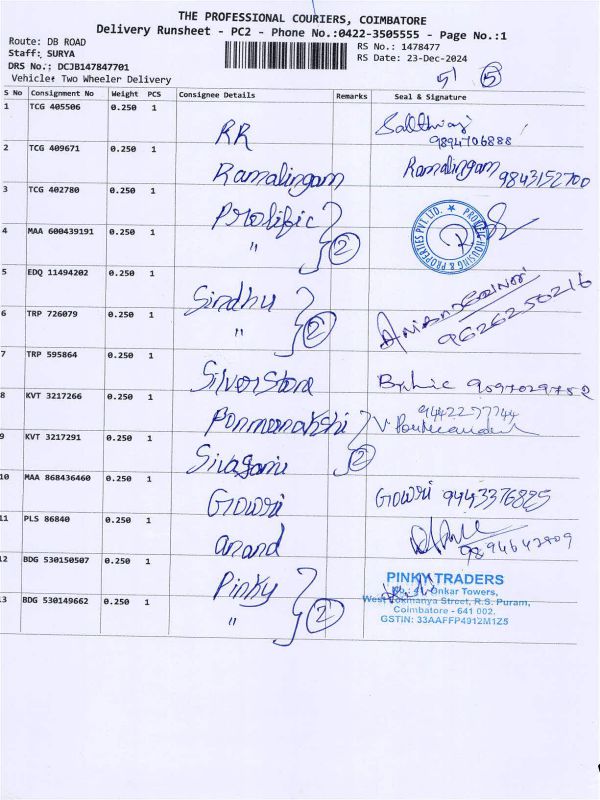 THE PROFESSIONAL COURIERS, COIMBATORE
Delivery Runsheet - PC2 - Phone No.:0422-3505555 - Page No.:1
Route: DB ROAD
Staff: SURYA
DRS No.: DCJB147847701
Vehicle: Two Wheeler Delivery
RS No.: 1478477
RS Date: 23-Dec-2024
5
S No Consignment No Weight PCS Consignee Details Remarks Seal & Signature
1 TCG 405506 0.250 1 RR 9894706888
2 TCG 409671 0.250 1 Ramalingam Ramalingam 9843152700
3 TCG 402780 0.250 1 Prolific
4 MAA 600439191 0.250 1 " 2
PROLIFIC HOUSING & PROPERTIES PVT. LTD.
5 EDQ 11494202 0.250 1 Sindhu 9626250216
6 TRP 726079 0.250 1 " 2
7 TRP 595864 0.250 1 Silver Stone 9597029752
8 KVT 3217266 0.250 1 Ponmeenakshi 9442277744
9 KVT 3217291 0.250 1 Sivagami 2
10 MAA 868436460 0.250 1 Gowri Gowri 9443376885
11 PLS 86840 0.250 1 Anand 9894642909
12 BDG 530150507 0.250 1 Pinky
13 BDG 530149662 0.250 1 " 2
PINKY TRADERS
Onkar Towers,
West Lokmanya Street, R.S. Puram,
Coimbatore - 641 002.
GSTIN: 33AAFFP4912M1Z5